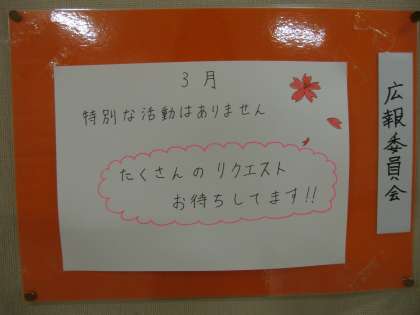 3月
特別な活動はありません
たくさんのリクエスト
お待ちしてます!!
広報委員会